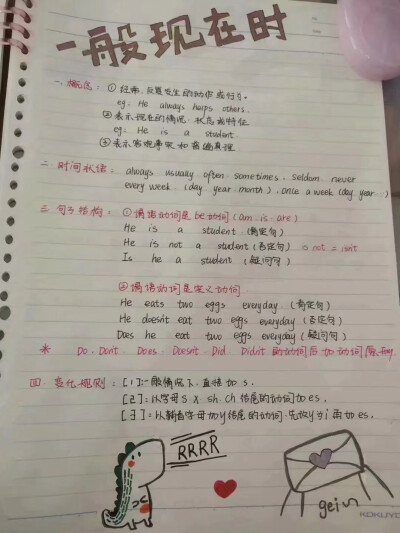 一般现在时
一. 概念: ① 经常. 反复发生的动作或行为.
eg. He always helps others.
② 表示现在的情况. 状态或特征.
eg: He is a student.
③ 表示客观事实和普遍真理.
二. 时间状语: always. usually. often. sometimes. seldom. never
every week (day. year. month). once a week (day year...)
三. 句子结构: ① 谓语动词是 be 动词 (am. is. are)
He is a student (肯定句)
He is not a student (否定句) is not = isn't
Is he a student (疑问句)
② 谓语动词是实义动词.
He eats two eggs everyday. (肯定句)
He doesn't eat two eggs everyday (否定句)
Does he eat two eggs everyday (疑问句)
* Do. Don't. Does. Doesn't. Did. Didn't 的动词后加动词原
四. 变化规则: [1]: 一般情况下. 直接加 s.
[2]: 以字母 s. x. sh. ch 结尾的动词加 es.
[3]: 以辅音字母加 y 结尾的动词. 先改 y 为 i 再加 es.
RRRR
KOKUYO